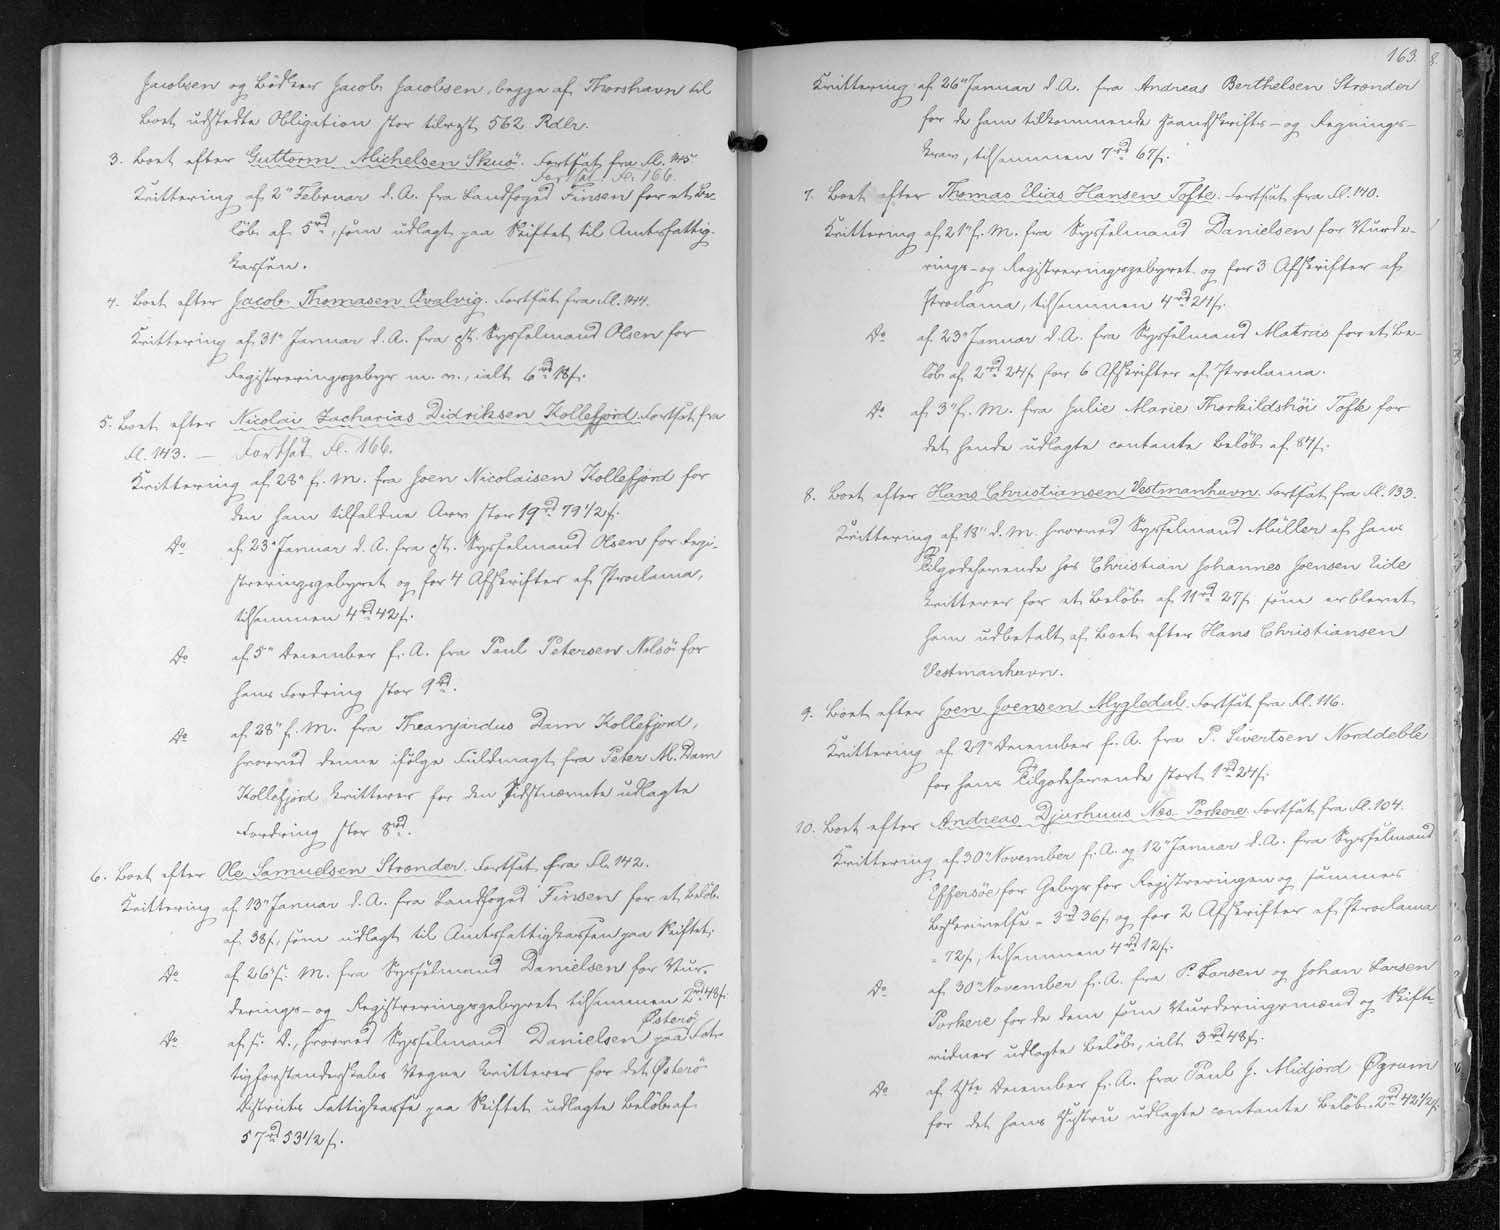 Jacobsen og Bødker Jacob Jacobsen, begge af Thorshavn til
Boet udstedte Obligation stor tilrest 562 Rdlr.
3. Boet efter Guttorm Michelsen Skuö. Fortsat fra Fl. 145
Fortsat Fl. 166.
Kvittering af 2' Februar d. A. fra Landfoged Finsen for et Be-
løb af 5 rd, som udlagt paa Skiftet til Amtsfattig-
kassen.
4. Boet efter Jacob Thomasen Qvalvig. Fortsat fra Fl. 144.
Kvittering af 31' Januar d. A. fra cst. Sysselmand Olsen for
Registreringsgebyr m. v., ialt 6 rd 18 s.
5. Boet efter Nicolai Zacharias Didriksen Kollefjord. Fortsat fra
Fl. 143. — Fortsat Fl. 166.
Kvittering af 28' f. M. fra Joen Nicolaisen Kollefjord for
den ham tilfaldne Arv stor 19 rd 79 1/2 s.
Do af 23' Januar d. A. fra cst. Sysselmand Olsen for Regi-
streringsgebyret og for 4 Afskrifter af Proclama,
tilsammen 4 rd 42 s.
Do af 5' December f. A. fra Paul Petersen Nolsö for
hans Fordring stor 9 rd.
Do af 28' f. M. fra Theanjardus Dam Kollefjord,
hvorved denne ifølge Fuldmagt fra Peter M. Dam
Kollefjord kvitterer for den Sidstnævnte udlagte
Fordring stor 8 rd.
6. Boet efter Ole Samuelsen Strænder. Fortsat fra Fl. 142.
Kvittering af 13' Januar d. A. fra Landfoged Finsen for et Beløb
af 38 s, som udlagt til Amtsfattigkassen paa Skiftet.
Do af 26' f. M. fra Sysselmand Danielsen for Vur-
derings- og Registreringsgebyret tilsammen 2 rd 48 s.
Østerö
Do af s. D., hvorved Sysselmand Danielsen paa Fat-
tigforstanderskabs Vegne kvitterer for det Østerö
Districts Fattigkasse paa Skiftet udlagte Beløb af
57 rd 53 1/2 s.
163.
Kvittering af 26' Januar d. A. fra Andreas Berthelsen Strænder
for de ham tilkommende Haandskrifts- og Regnings-
krav, tilsammen 7 rd 67 s.
7. Boet efter Thomas Elias Hansen Tofte. Fortsat fra Fl. 140.
Kvittering af 21' f. M. fra Sysselmand Danielsen for Vurde-
rings- og Registreringsgebyret og for 3 Afskrifter af
Proclama, tilsammen 4 rd 24 s.
Do af 23' Januar d. A. fra Sysselmand Matras for et Be-
løb af 2 rd 24 s for 6 Afskrifter af Proclama.
Do af 3' f. M. fra Julie Marie Thorkildshöi Tofte for
det hende udlagte contante Beløb af 84 s.
8. Boet efter Hans Christiansen Vestmanhavn. Fortsat fra Fl. 133.
Kvittering af 18' d. M. hvorved Sysselmand Müller af hans
Tilgodehavende hos Christian Johannes Joensen Eide
kvitterer for et Beløb af 11 rd 27 s som er blevet
ham udbetalt af Boet efter Hans Christiansen
Vestmanhavn.
9. Boet efter Joen Joensen Mygledal. Fortsat fra Fl. 116.
Kvittering af 29' December f. A. fra P. Sivertsen Norddeble
for hans Tilgodehavende stort 1 rd 24 s.
10. Boet efter Andreas Djurhuus Næs Porkere. Fortsat fra Fl. 104.
Kvittering af 30' November f. A. og 12' Januar d. A. fra Sysselmand
Effersøe for Gebyr for Registreringen og sammes
Beskrivelse = 3 rd 36 s og for 2 Afskrifter af Proclama
= 72 s, tilsammen 4 rd 12 s.
Do af 30' November f. A. fra P. Larsen og Johan Larsen
Porkere for de dem som Vurderingsmænd og Skifte-
vidner udlagte Beløb, ialt 3 rd 48 s.
Do af December f. A. fra Paul J. Midjord Øgrum
for det hans Hustru udlagte contante Beløb 2 rd 42 1/2 s.